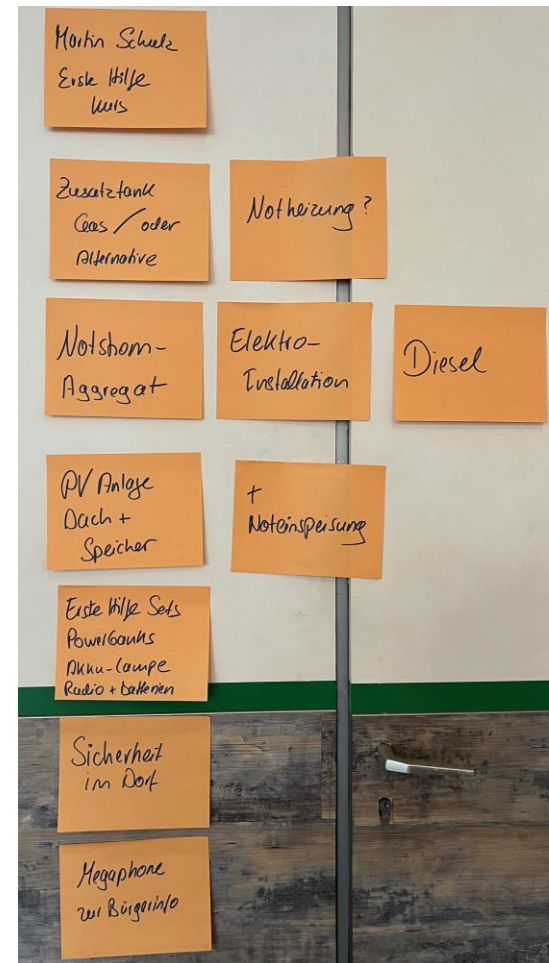 Martin Schulz
Erste Hilfe
Kurs
Zusatztank
Gas / oder
Alternative
Notheizung?
Notstrom-
Aggregat
Elektro-
Installation
Diesel
PV Anlage
Dach +
Speicher
+
Noteinspeisung
Erste Hilfe Sets
Powerbanks
Akku-Lampe
Radio + batterien
Sicherheit
im Dorf
Megaphone
zur Bürgerinfo